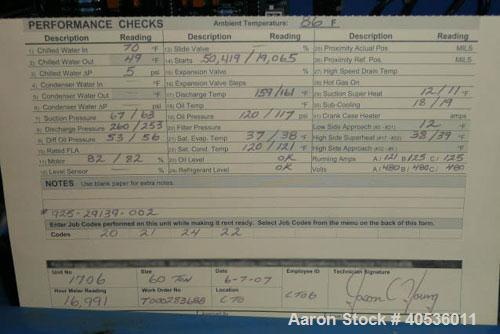 PERFORMANCE CHECKS Ambient Temperature: 86 F
Description Reading Description Reading Description Reading
1) Chilled Water In 70 °F 13) Slide Valve — % 25) Proximity Actual Pos MILS
2) Chilled Water Out 49 °F 14) Starts 50,419 / 19,065 26) Proximity Ref. Pos. MILS
3) Chilled Water ΔP 5 psi 15) Expansion Valve % 27) High Speed Drain Temp
4) Condenser Water In — °F 16) Expansion Valve Steps 28) Hot Gas On
5) Condenser Water Out — °F 17) Discharge Temp 159/161 °F 29) Suction Super Heat 12/11 °F
6) Condenser Water ΔP — psi 18) Oil Temp °F 30) Sub-Cooling 18/19
7) Suction Pressure 67/68 19) Oil Pressure 120/117 psi 31) Crank Case Heater amps
8) Discharge Pressure 260/253 20) Filter Pressure Low Side Approach 12 °F
9) Diff Oil Pressure 53/56 21) Sat. Evap. Temp 37/38 °F High Side Superheat 38/39 °F
10) Rated FLA 22) Sat. Cond. Temp 120/121 °F High Side Approach
11) Motor 82/82 % 23) Oil Level OK Running Amps A/121 B/125 C/125
12) Level Sensor — % 24) Refrigerant Level OK Volts A/480 B/480 C/480
NOTES Use blank paper for extra notes.
# 925-29139-002
Enter Job Codes performed on this unit while making it rent ready. Select Job Codes from the menu on the back of this form.
Codes 20 21 24 22
Unit No Size Date Employee ID Technician Signature
1706 60 Ton 6-7-07 Jason C Young
Hour Meter Reading Work Order No Location
16,991 T000283688 CTO CTOB
Aaron Stock # 40536011